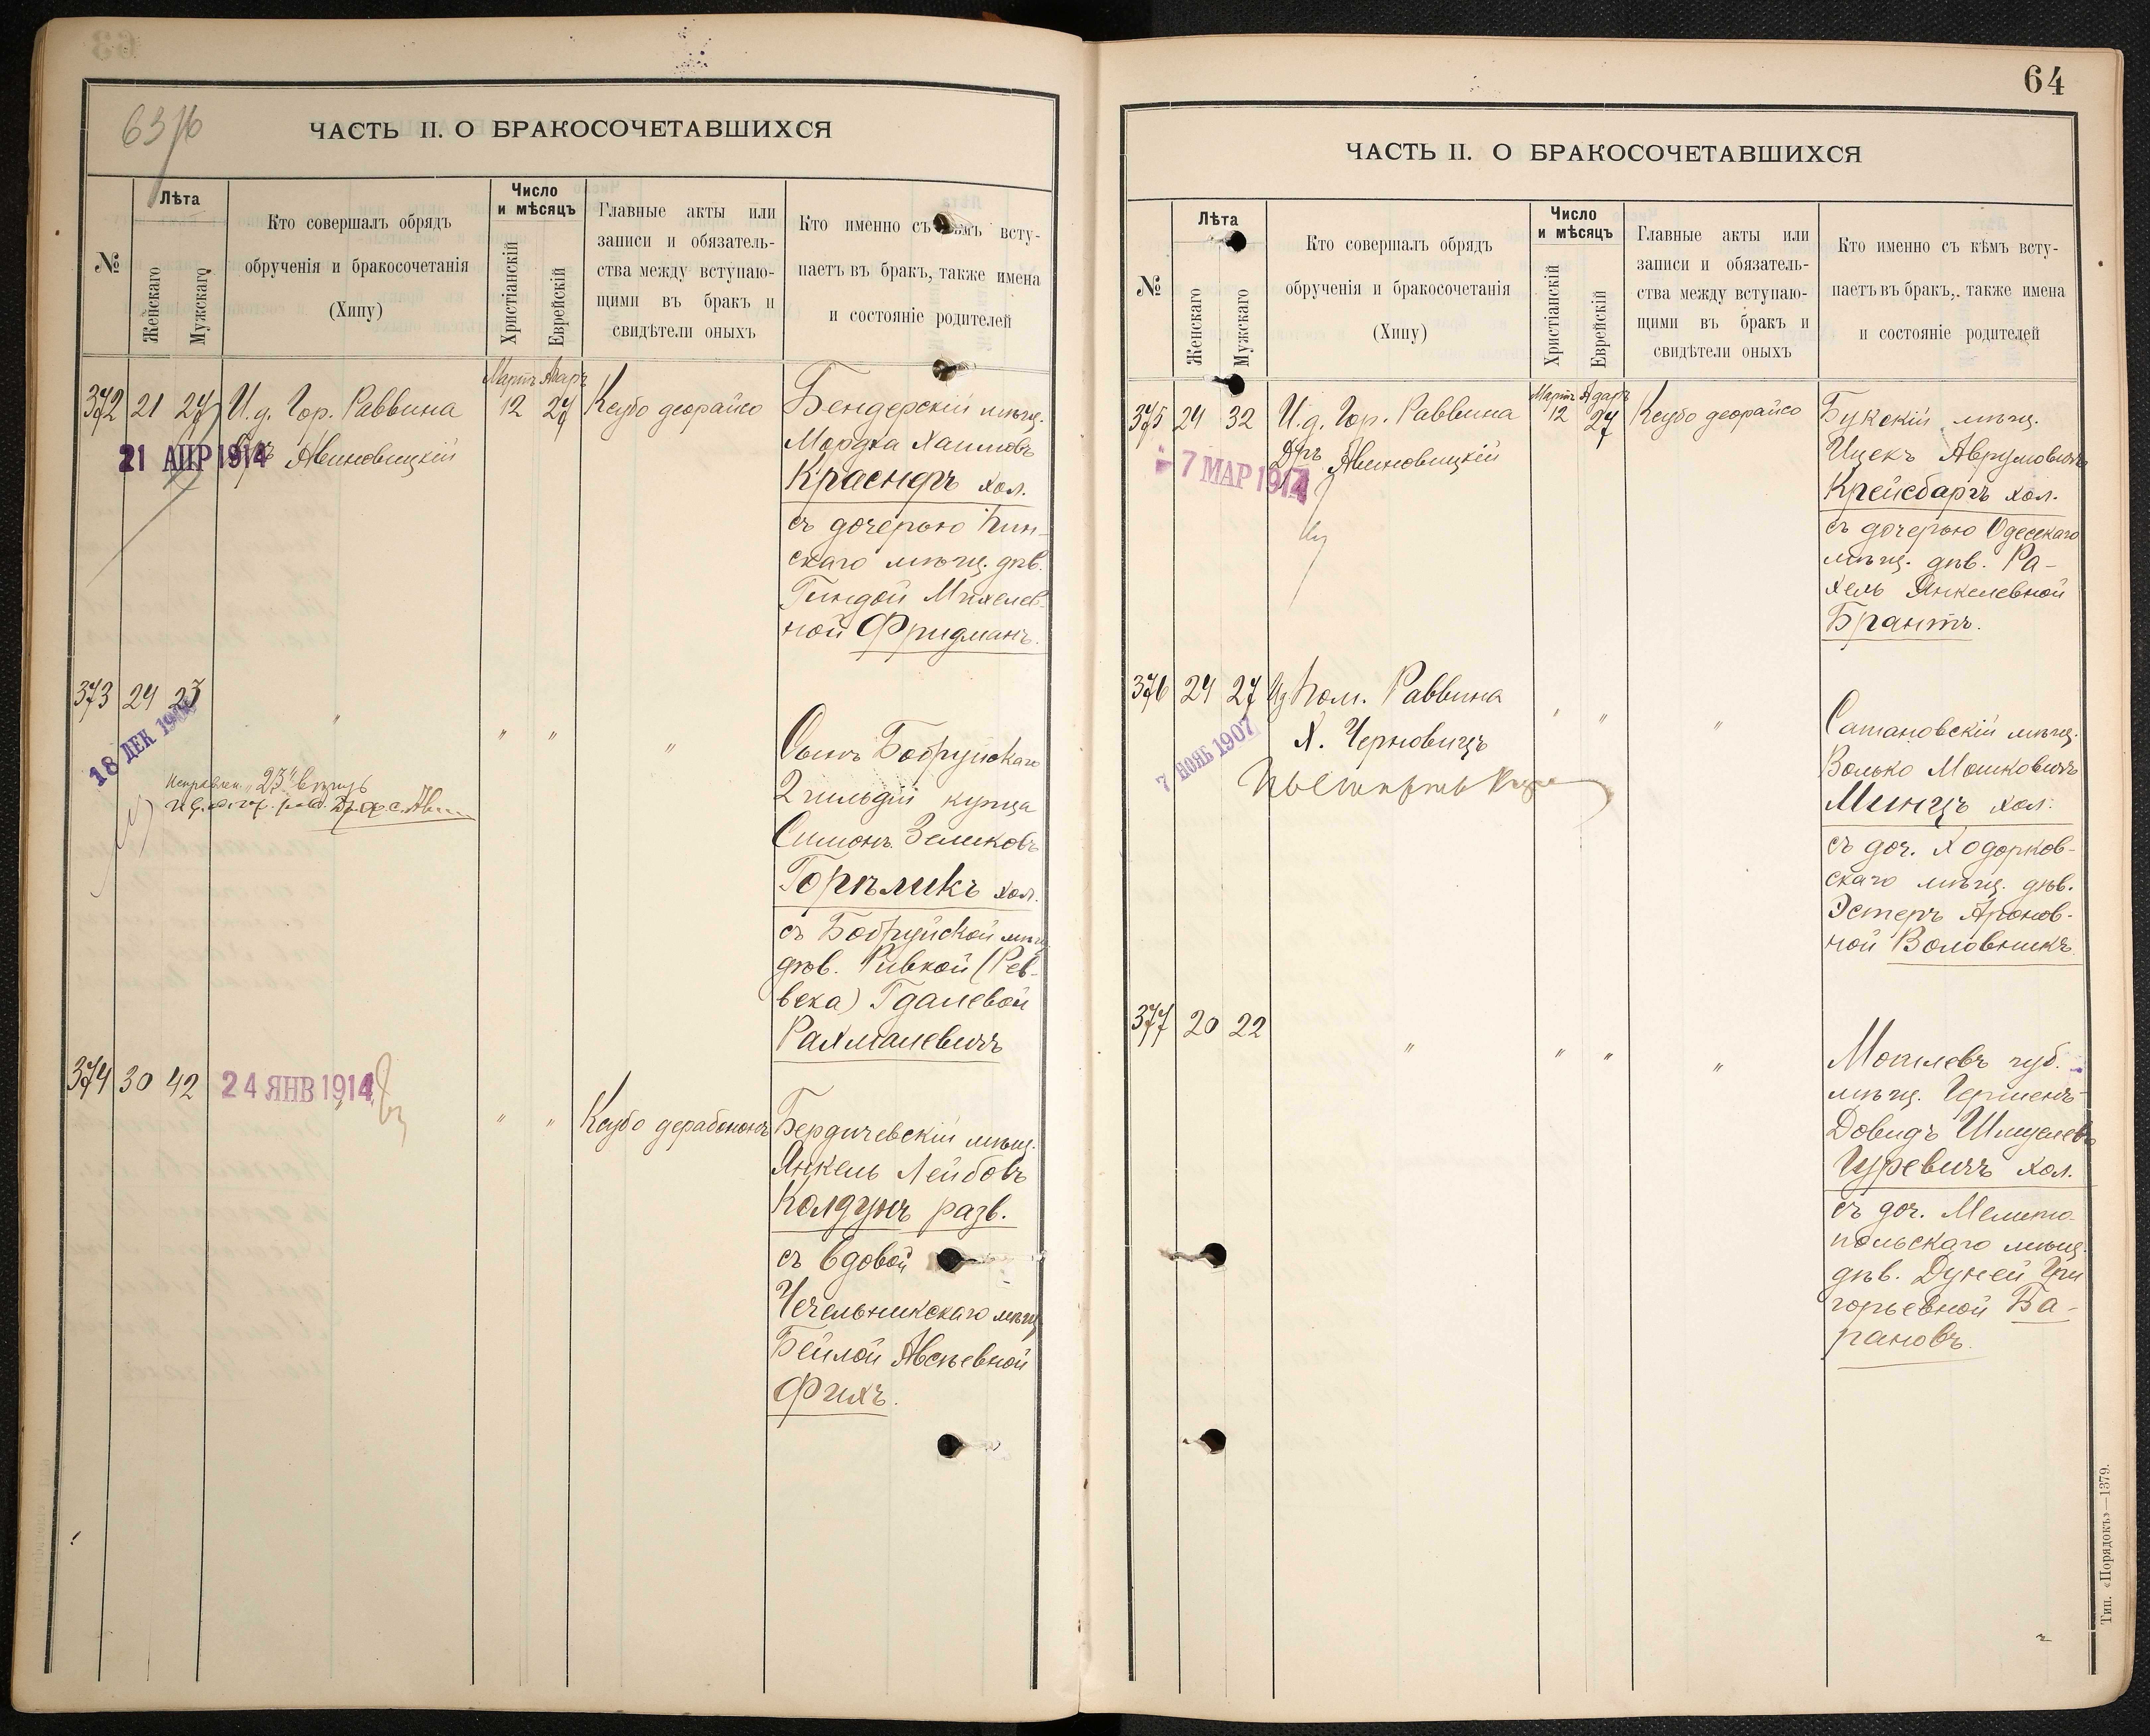 63/б
ЧАСТЬ II. О БРАКОСОЧЕТАВШИХСЯ
№
Лѣта
Женскаго
Мужскаго
Кто совершалъ обрядъ
обрученія и бракосочетанія
(Хипу)
Число
и мѣсяцъ
Христіанскій
Еврейскій
Главные акты или
записи и обязатель-
ства между вступаю-
щими въ бракъ и
свидѣтели оныхъ
Кто именно съ кѣмъ всту-
паетъ въ бракъ, также имена
и состояніе родителей
Мартъ Адаръ
372 21 27 И.д. Гор. Раввина 12 27 Ксубо деорайсо
Дръ Авиновицкій
21 АПР 1914
Бендерскій мѣщ.
Мордка Хаимовъ
Краснеръ хол.
съ дочерью Пин-
скаго мѣщ. дѣв.
Гиндой Михелев-
ной Фридманъ.
373 24 23 " " " "
18 ДЕК
Исправлен. "23" вѣрно
Сынъ Бобруйскаго
2 гильдіи купца
Симонъ Зеликовъ
Горѣликъ хол.
съ Бобруйской мѣщ.
дѣв. Ривкой (Рев-
века) Гдалевой
Рахмалевичъ
374 30 42 " " " Ксубо дерабононъ
24 ЯНВ 1914
Бердичевскій мѣщ.
Янкель Лейбовъ
Колдунъ разв.
съ вдовой
Чечельникскаго мѣщ.
Бейлой Авсѣевной
Фихъ.
64
ЧАСТЬ II. О БРАКОСОЧЕТАВШИХСЯ
№
Лѣта
Женскаго
Мужскаго
Кто совершалъ обрядъ
обрученія и бракосочетанія
(Хипу)
Число
и мѣсяцъ
Христіанскій
Еврейскій
Главные акты или
записи и обязатель-
ства между вступаю-
щими въ бракъ и
свидѣтели оныхъ
Кто именно съ кѣмъ всту-
паетъ въ бракъ, также имена
и состояніе родителей
Мартъ Адаръ
375 24 32 И.д. Гор. Раввина 12 27 Ксубо деорайсо
Дръ Авиновицкій
7 МАР 1914
Букскій мѣщ.
Ицекъ Аврумовичъ
Крейсбаргъ хол.
съ дочерью Одесскаго
мѣщ. дѣв. Ра-
хель Янкелевной
Брантъ.
376 24 27 Ид Пом. Раввина " " "
Х. Черновицъ
7 НОЯБ 1907
Сатановскій мѣщ.
Волько Мошковичъ
Минцъ хол.
съ доч. Ходорков-
скаго мѣщ. дѣв.
Эстеръ Аронов-
ной Воловникъ.
377 20 22 " " " "
Могилевъ губ.
мѣщ. Гершенъ-
Довидъ Шмулевъ
Гуревичъ хол.
съ доч. Мелито-
польскаго мѣщ.
дѣв. Дуней Гри
горьевной Ба-
рановъ.
Тип. «Порядокъ»—1379.